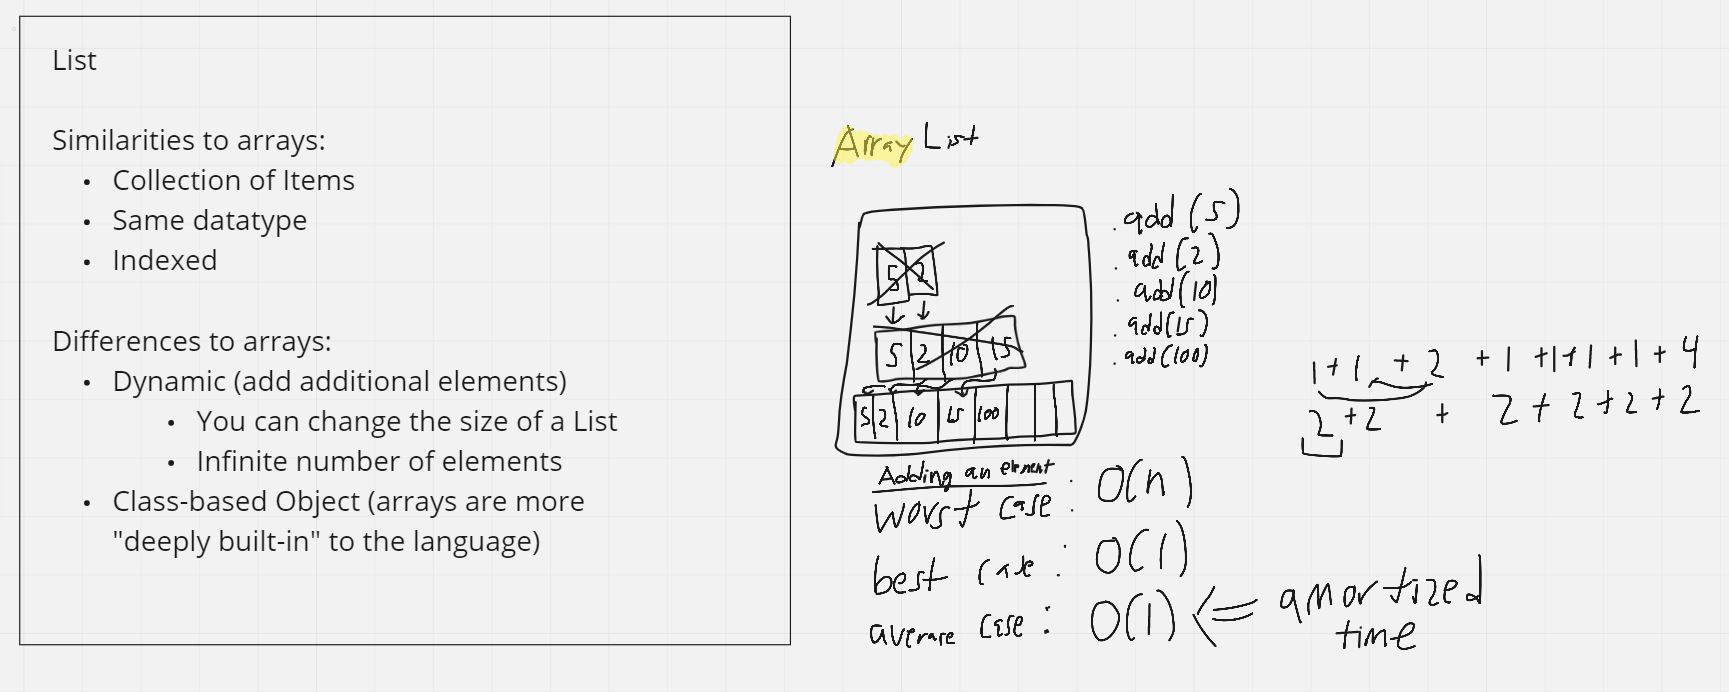 List
Similarities to arrays:
• Collection of Items
• Same datatype
• Indexed
Differences to arrays:
• Dynamic (add additional elements)
• You can change the size of a List
• Infinite number of elements
• Class-based Object (arrays are more
"deeply built-in" to the language)
Array List
5 2
5 2 10 15
5 2 10 15 100
.add(5)
.add(2)
.add(10)
.add(15)
.add(100)
Adding an element
worst case: O(n)
best case: O(1)
average case: O(1) <= amortized
time
1+1 +2 +1+1+1+1+4
2+2 + 2+2+2+2